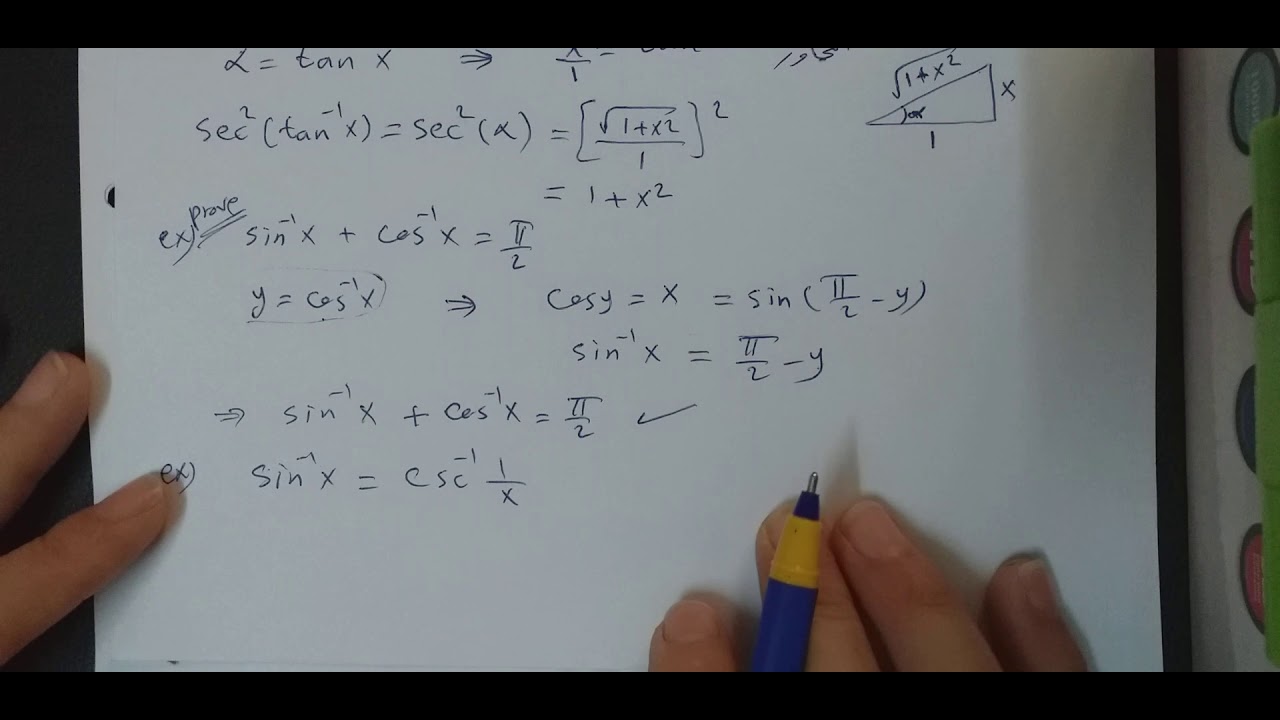 α = tan x ⇒ x/1 =
√1+x² x
α
1
sec²(tan⁻¹x) = sec²(α) = [√1+x²/1]²
= 1 + x²
ex) prove sin⁻¹x + cos⁻¹x = π/2
y = cos⁻¹x ⇒ cosy = x = sin(π/2 - y)
sin⁻¹x = π/2 - y
⇒ sin⁻¹x + cos⁻¹x = π/2 ✓
ex) sin⁻¹x = csc⁻¹ 1/x